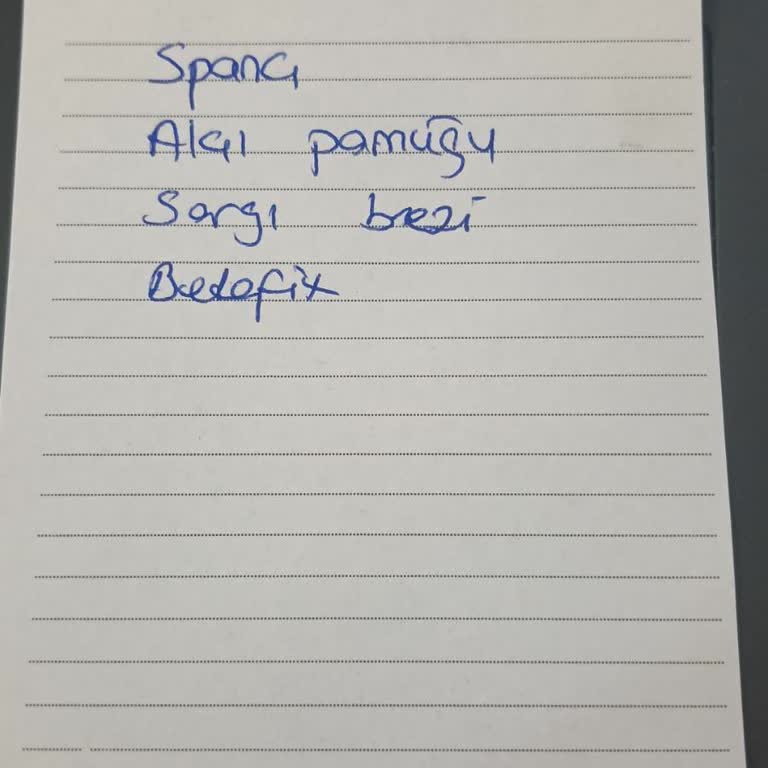 Spanç
Alçı pamuğu
Sargı bezi
Betafix